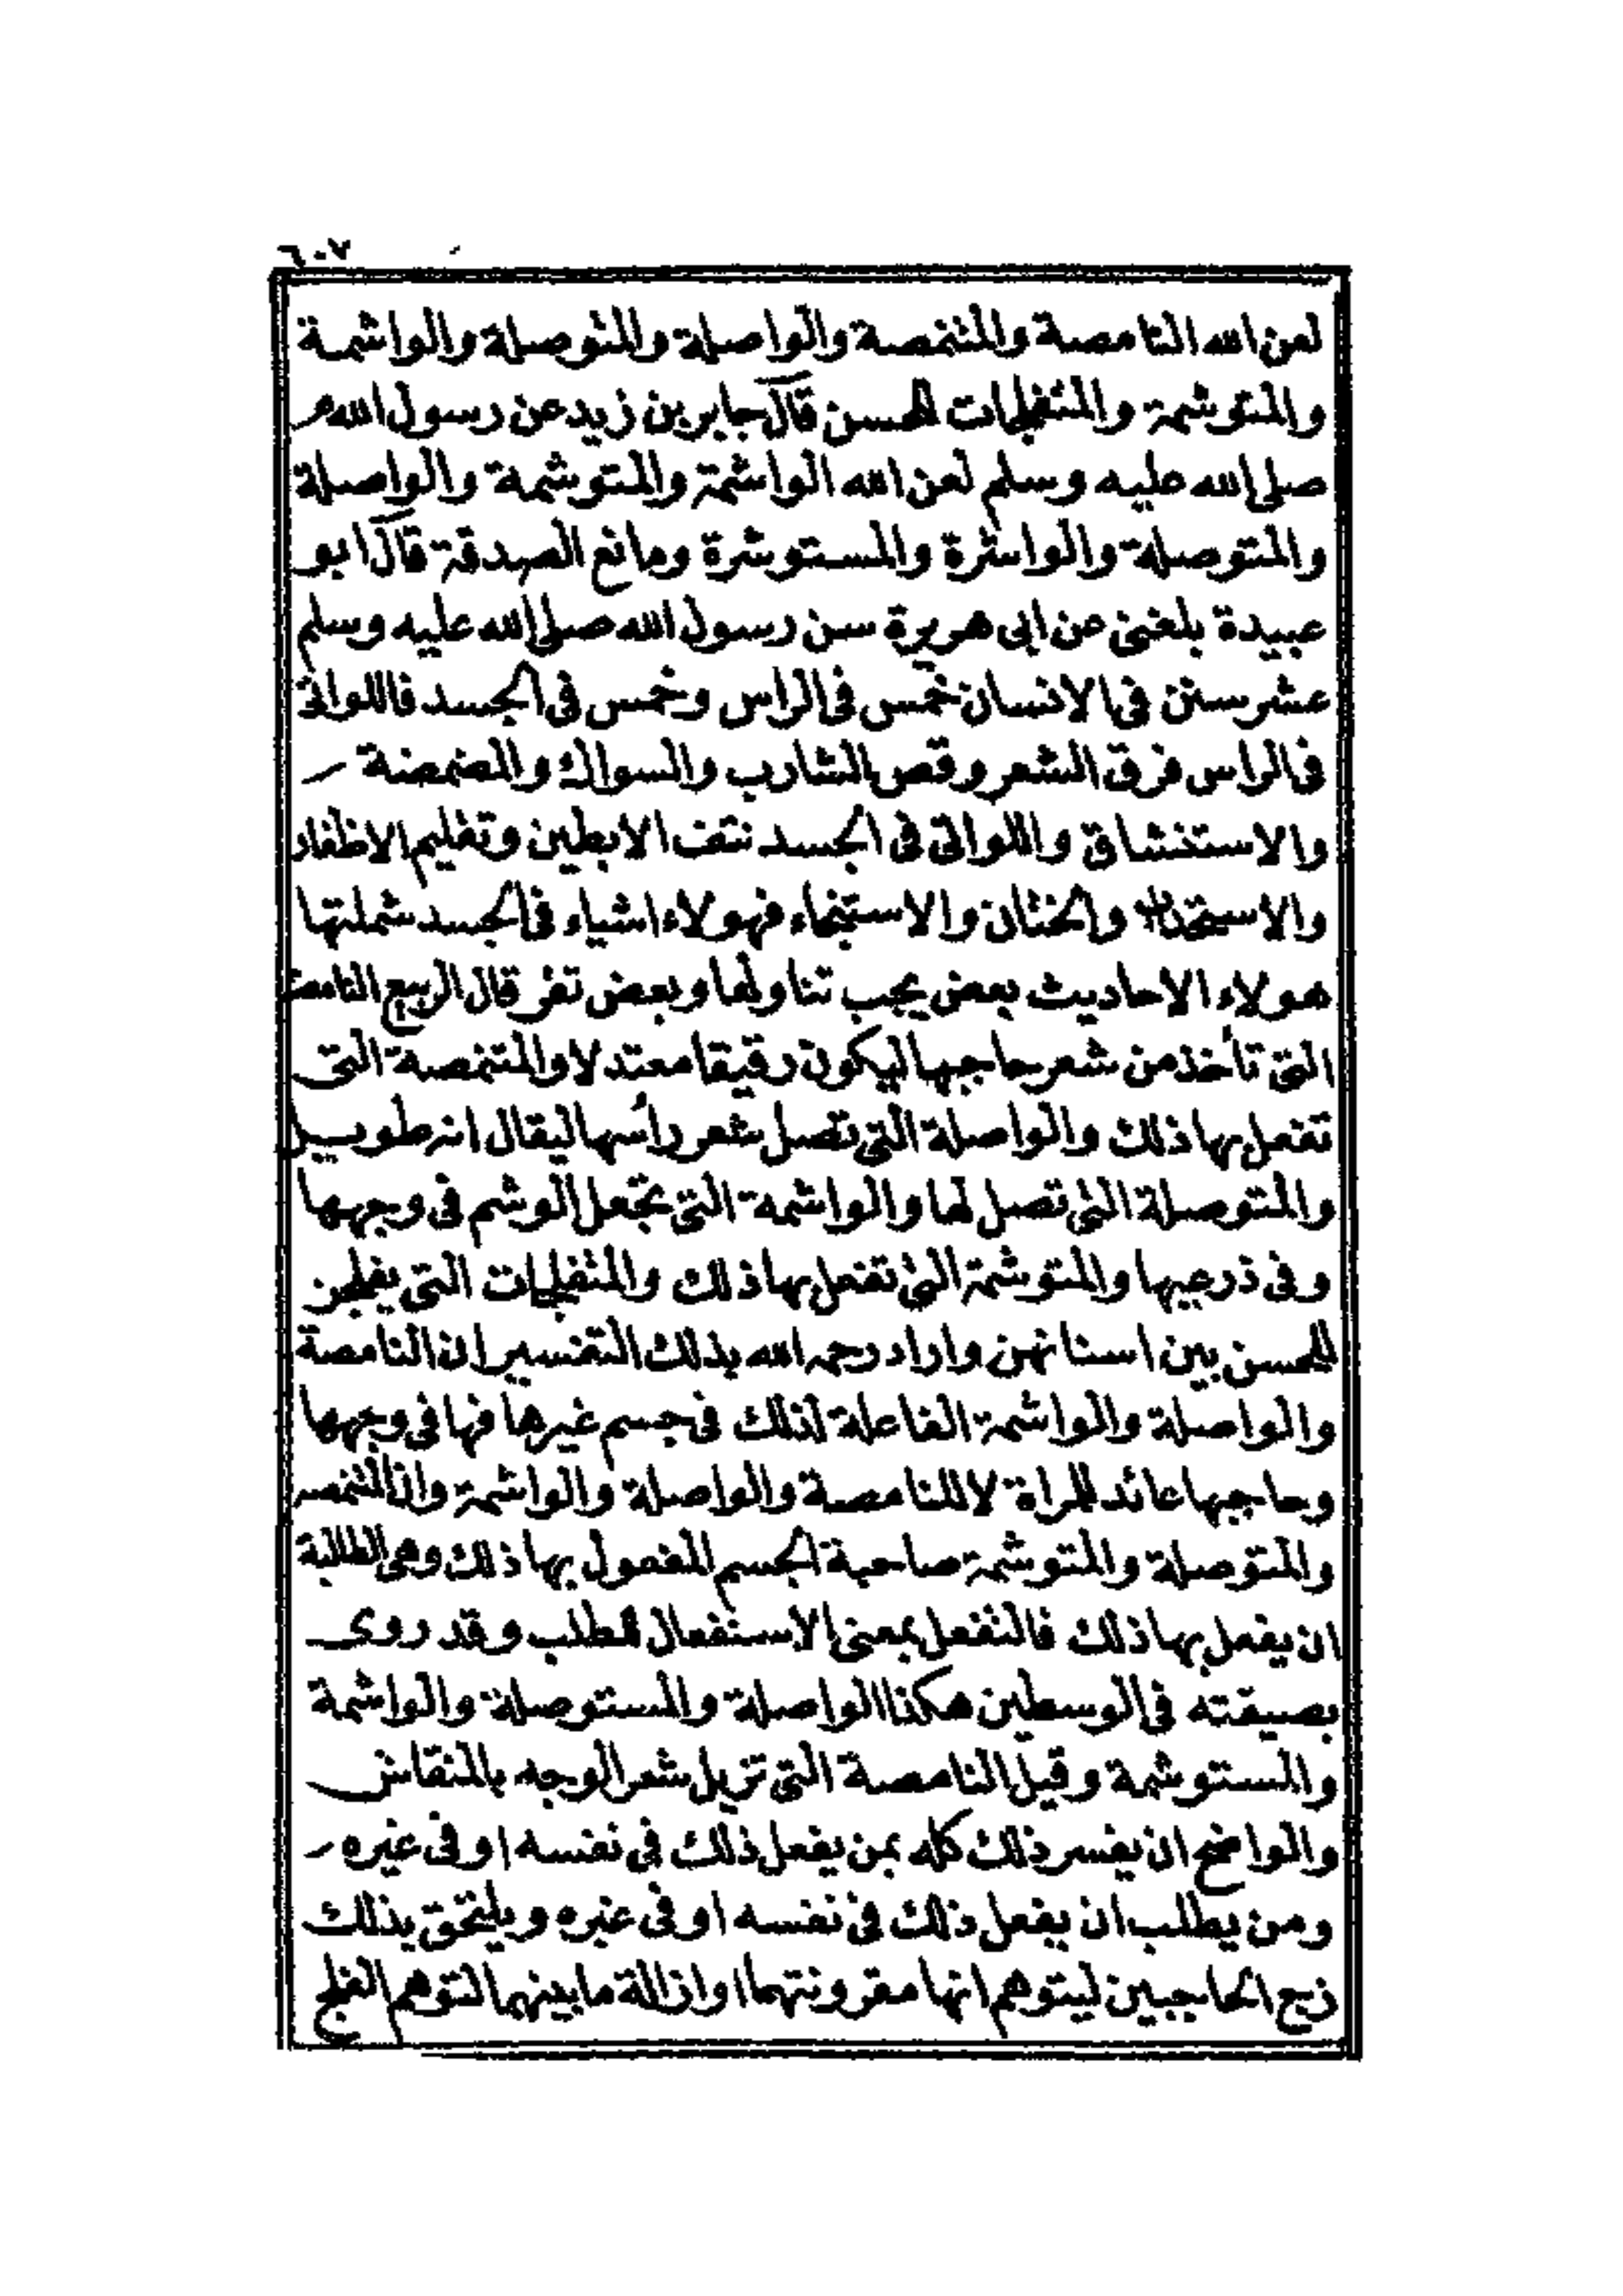 ٦٠٧
لعن الله النامصة والمتنمصة والواصلة والمتوصلة والواشمة
والمتوشمة والمتفلجات للحسن قال جابر بن زيد عن رسول الله
صلى الله عليه وسلم لعن الله الواشمة والمتوشمة والواصلة
والمتوصلة والواشرة والمستوشرة ومانع الصدقة قال ابو
عبيدة بلغنى عن ابى هريرة سن رسول الله صلى الله عليه وسلم
عشر سنن فى الانسان خمس فى الراس وخمس فى الجسد فاللواتى
فى الراس فرق الشعر وقص الشارب والسواك والمضمضة
والاستنشاق واللواتى فى الجسد نتف الابطين وتقليم الاظفار
والاستحداد والختان والاستنجاء فهولاء اشياء فى الجسد شملتها
هولاء الاحاديث بعض يجب تناولها وبعض تقر قال الربيع النامصة
التى تأخذ من شعر حاجبها ليكون رقيقا معتدلا والمتنمصة التى
تفعل بها ذلك والواصلة التى تصل شعر رأسها ليقال انه طويل
والمتوصلة التى تصل لها والواشمة التى تجعل الوشم فى وجهها
وفى ذرعيها والمتوشمة التى تفعل بها ذلك والمتفلجات التى يفلجن
للحسن بين اسنانهن واراد رحمه الله بذلك التفسير ان النامصة
والواصلة والواشمة الفاعلة لذلك فى جسم غيرها فها فى وجهها
وحاجبها عائد للمراة لا للنامصة والواصلة والواشمة وان المتنمصة
والمتوصلة والمتوشمة صاحبة الجسم المفعول بها ذلك وهى الطالبة
ان يفعل بها ذلك فالتفعل بمعنى الاستفعال للطلب وقد روى
بصيغته فى الوسطين هكذا الواصلة والمستوصلة والواشمة
والمستوشمة وقيل النامصة التى تزيل شعر الوجه بالمنقاش
والواضح ان يفسر ذلك كله بمن يفعل ذلك فى نفسه او فى غيره
ومن يطلب ان يفعل ذلك فى نفسه او فى غيره ويلتحق بذلك
زجج الحاجبين ليتوهم انها مقرونتهما او ازالة ما بينهما لتوهم الفلج